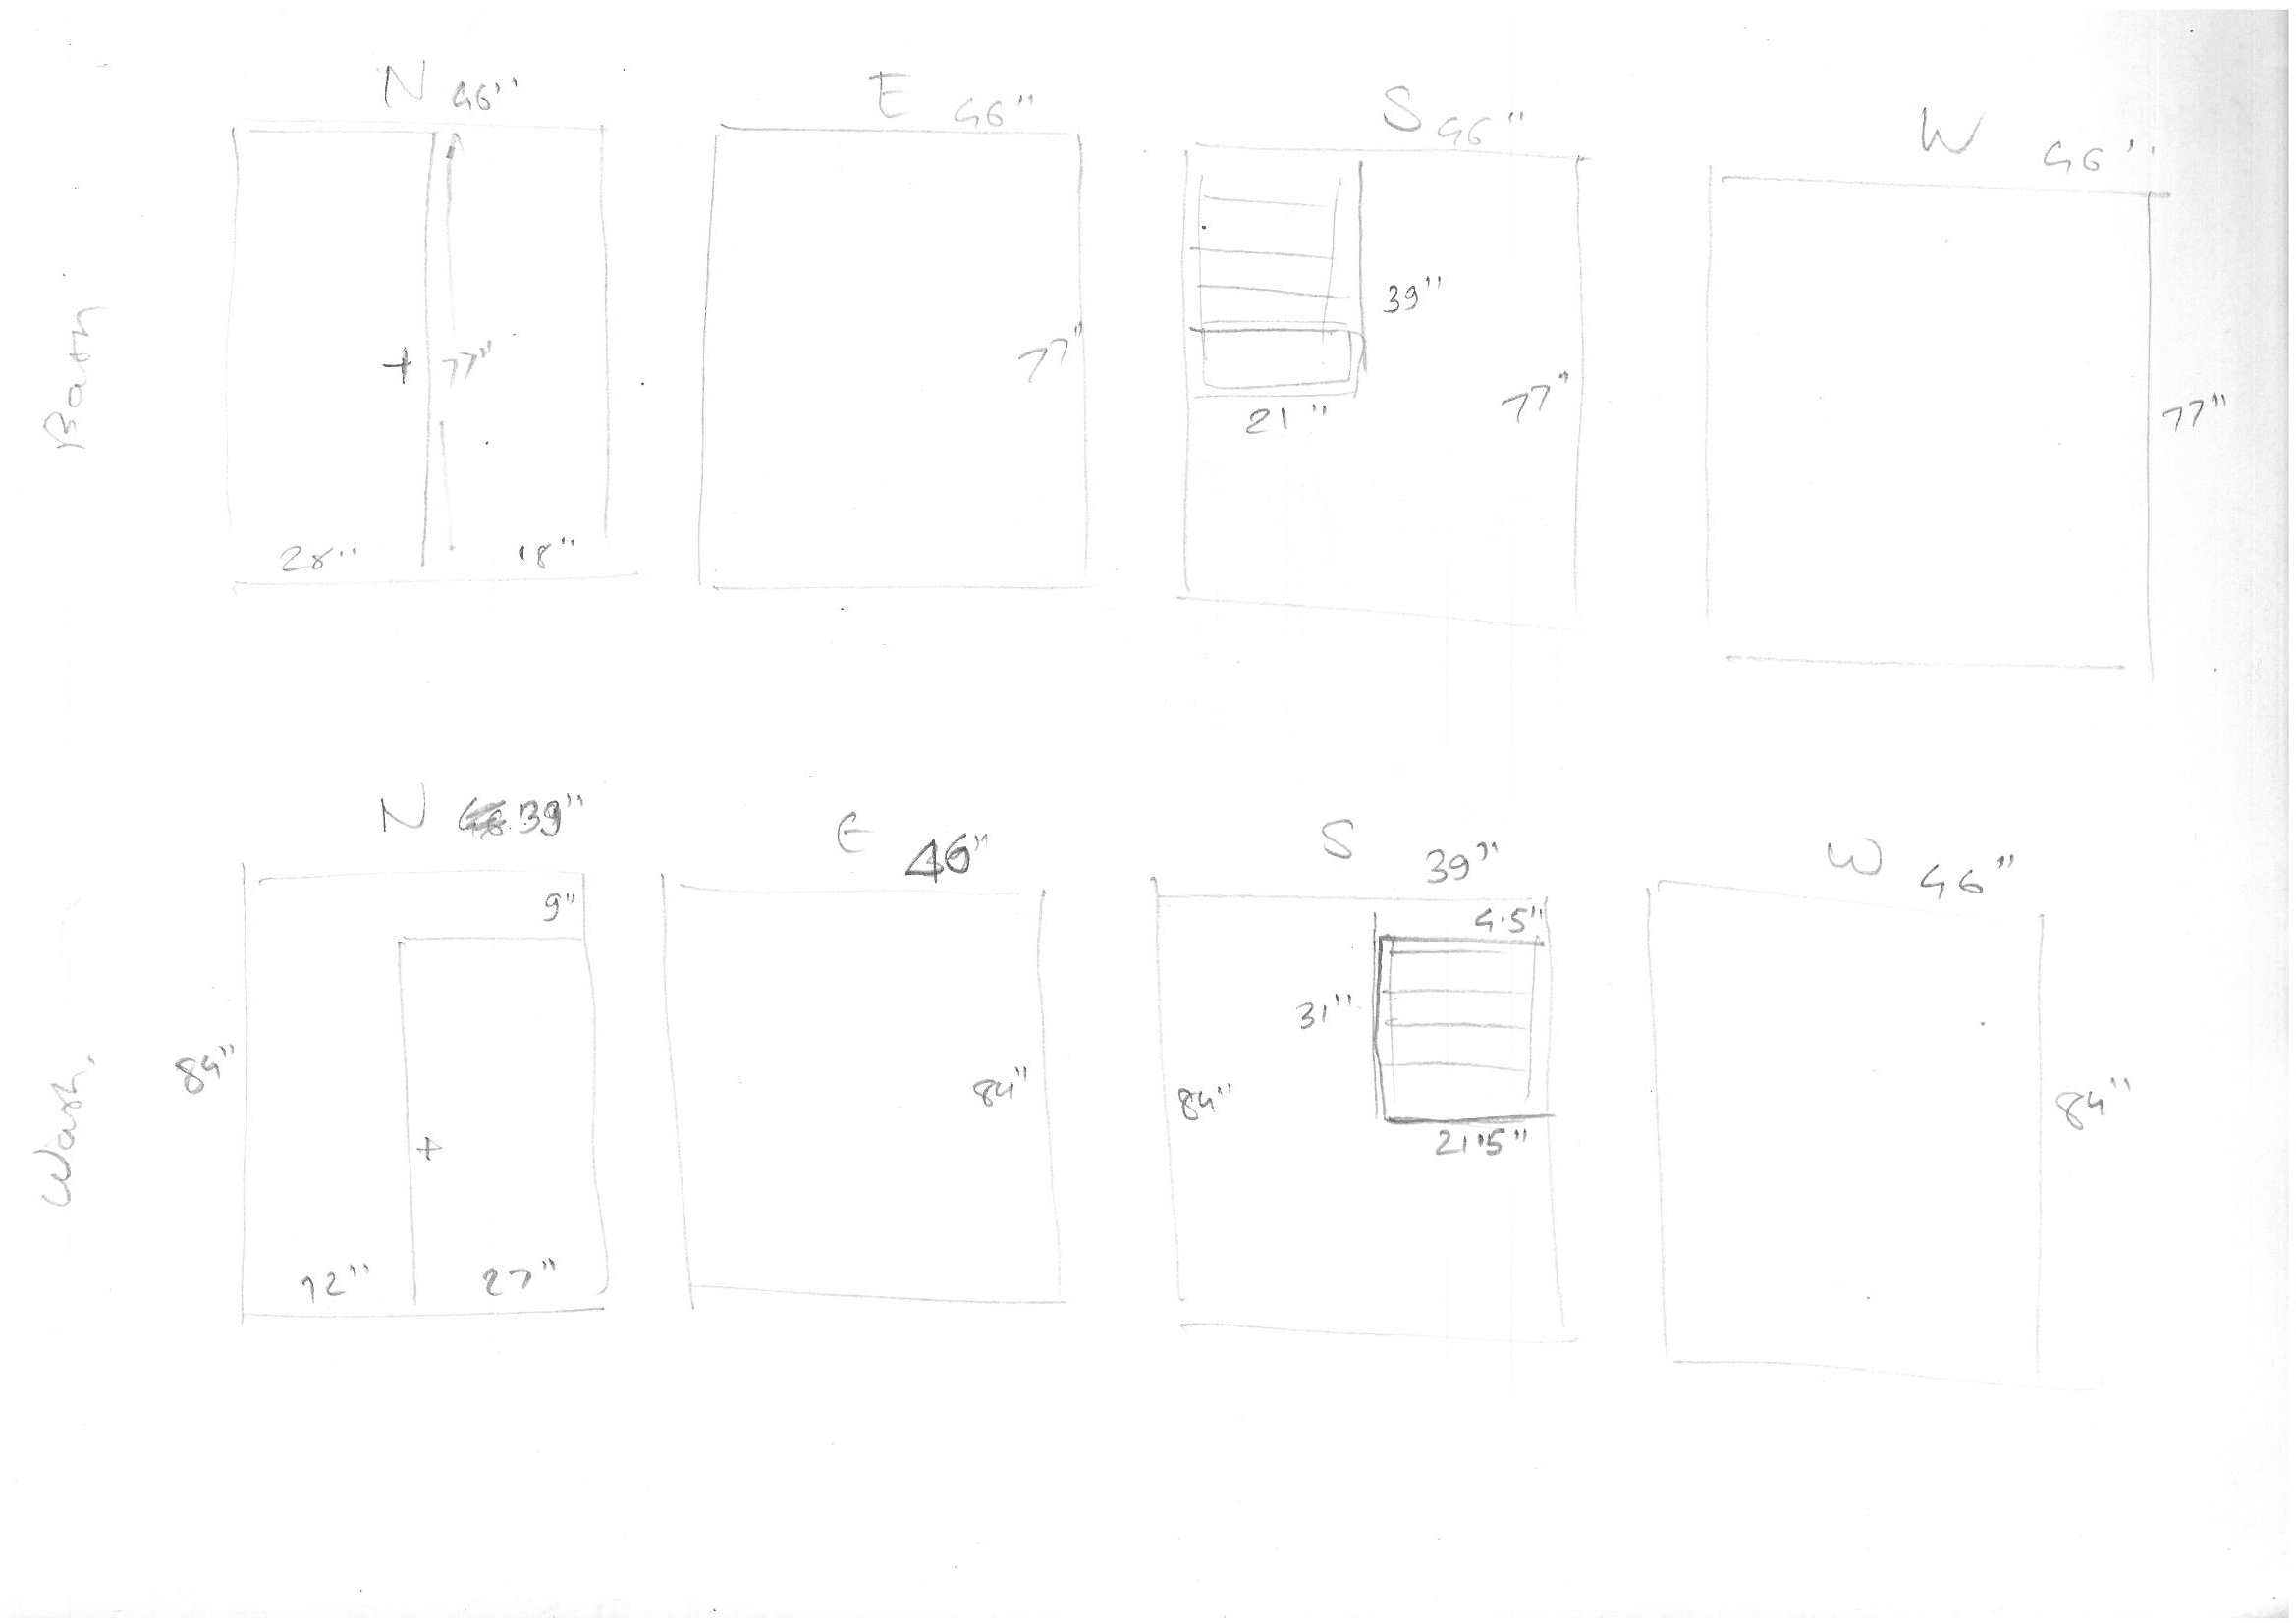 Bath
N 46"
28" + 77" 18"
E 46"
77"
S 46"
39"
21"
77"
W 46"
77"
Wash.
N 39"
9"
84"
+
12" 27"
E 46"
84"
S 39"
4.5"
31"
84"
21.5"
W 46"
84"